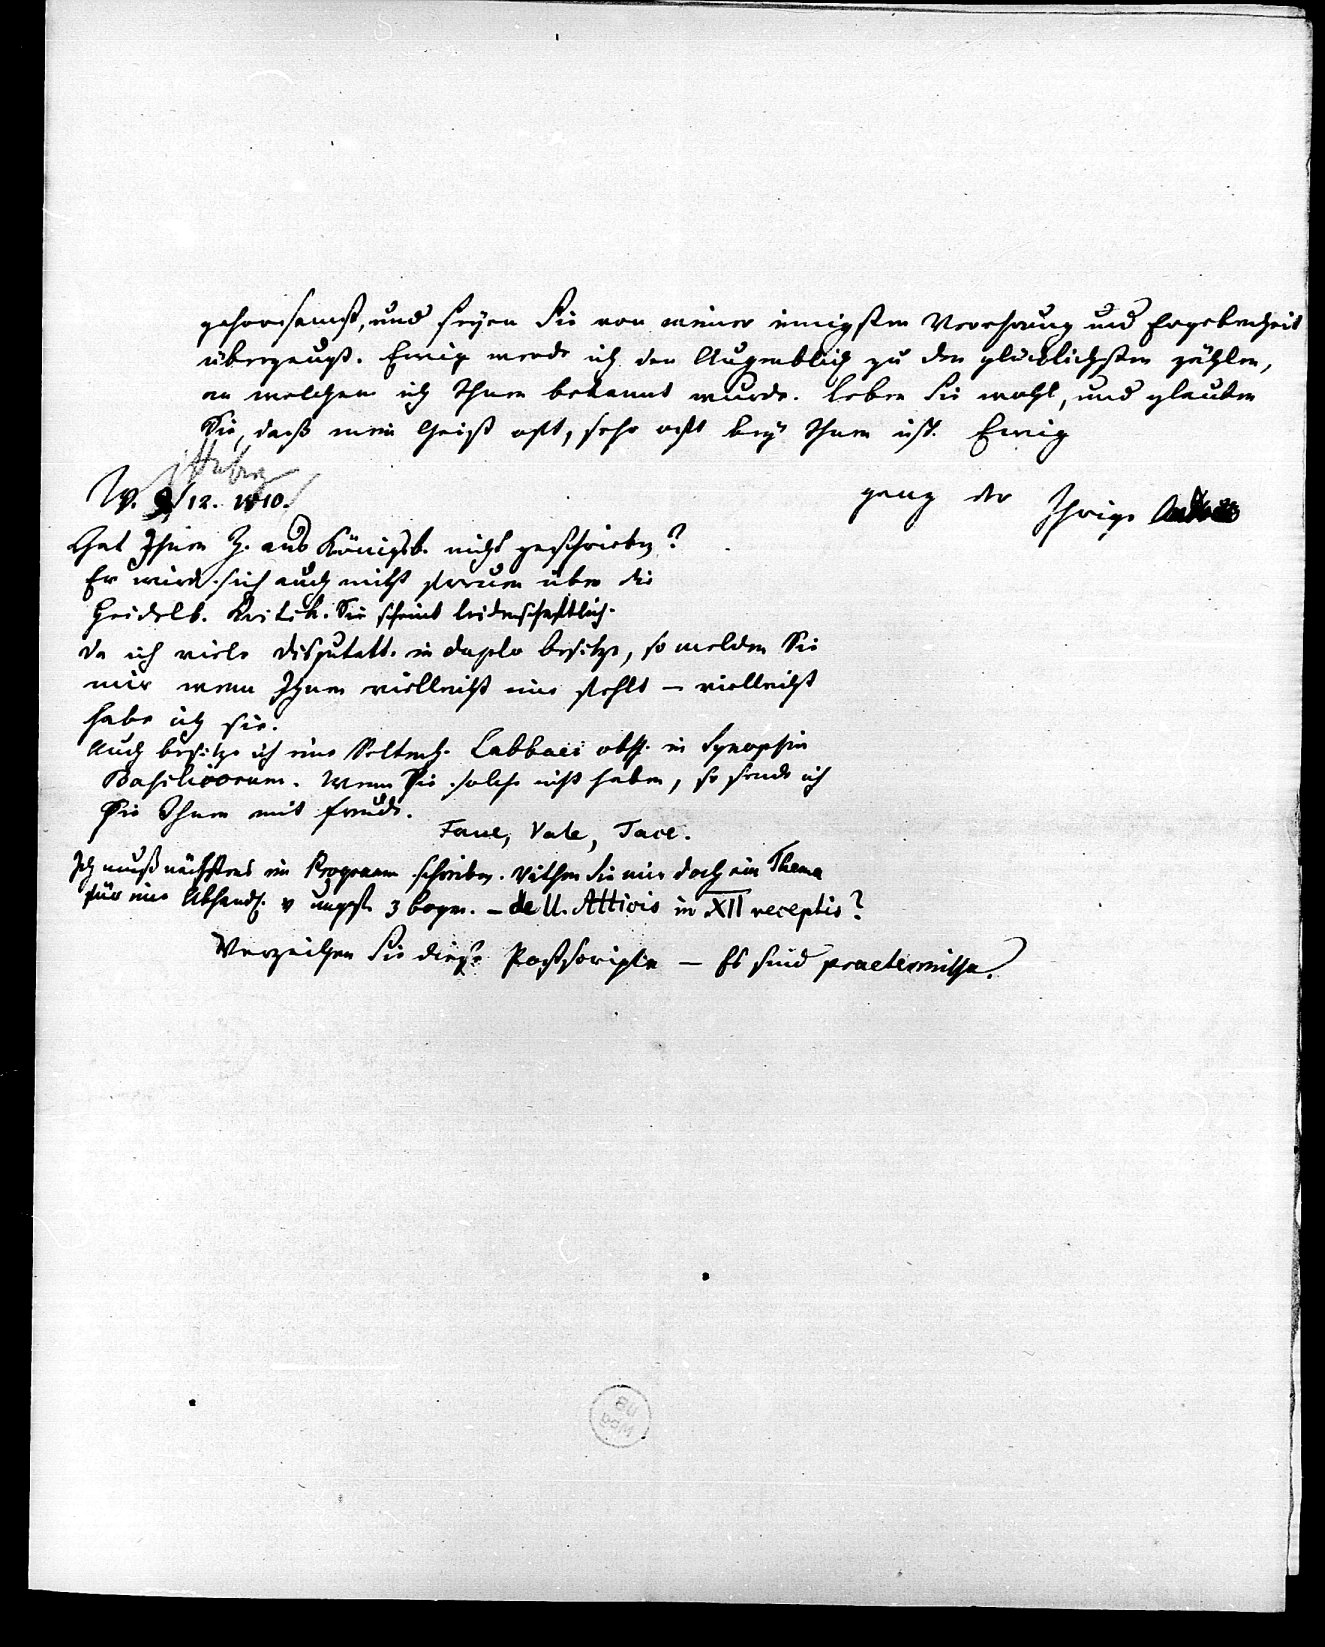 gehorsamst, und seyen Sie von meiner innigsten Verehrung und Ergebenheit
überzeugt. Ewig werde ich den Augenblick zu den glücklichsten zählen,
an welchem ich Ihnen bekannt wurde. Leben Sie wohl, und glauben
Sie, daß mein Geist oft, sehr oft bey Ihnen ist. Ewig
ganz der Ihrige
W. 9/12. 1810.
Hat Ihnen Z. aus Königsb. nicht geschrieben?
Er wird sich auch nicht freuen über die
Heidelb. Kritik. Sie scheint leidenschaftlich.
Da ich viele Disputatt. in duplo besitze, so melden Sie
mir wenn Ihnen vielleicht eine fehlt – vielleicht
habe ich sie.
Auch besitze ich eine Seltenh. Labbaei obss. in Synopsin
Basilicorum. Wenn Sie solche nicht haben, so sende ich
Sie Ihnen mit Freude.
Faue, Vale, Tace.
Ich muß nächstens ein Programm schreiben. Rathen Sie mir doch ein Thema
für eine Abhandl. v ungef. 3 bogen. – de ll. Atticis in XII receptis?
Verzeihen Sie diese Postscripta – Es sind praetermissa.